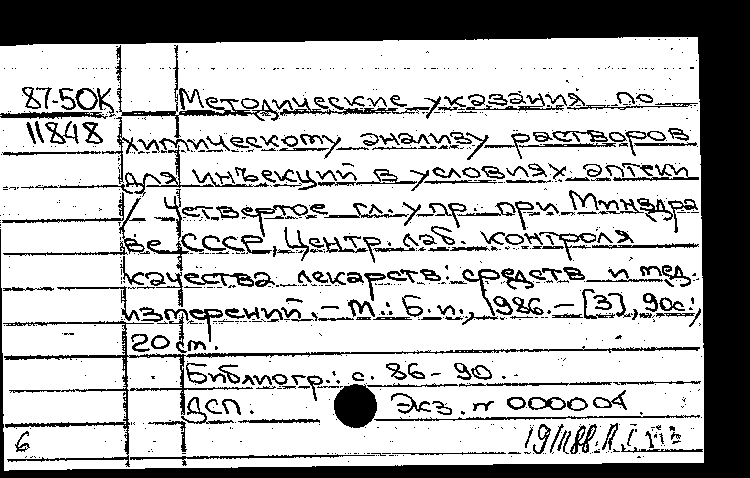 87-50К Методические указания по
11848 химическому анализу растворов
для инъекций в условиях аптеки
/ Четвертое гл. упр. при Минздра
ве СССР, Центр. лаб. контроля
качества лекарств. средств и мед.
измерений. – М.: Б.и., 1986. – [3], 90с.;
20 см.
Библиогр.: с. 86-90.
ДСП. Экз. N 000004
6